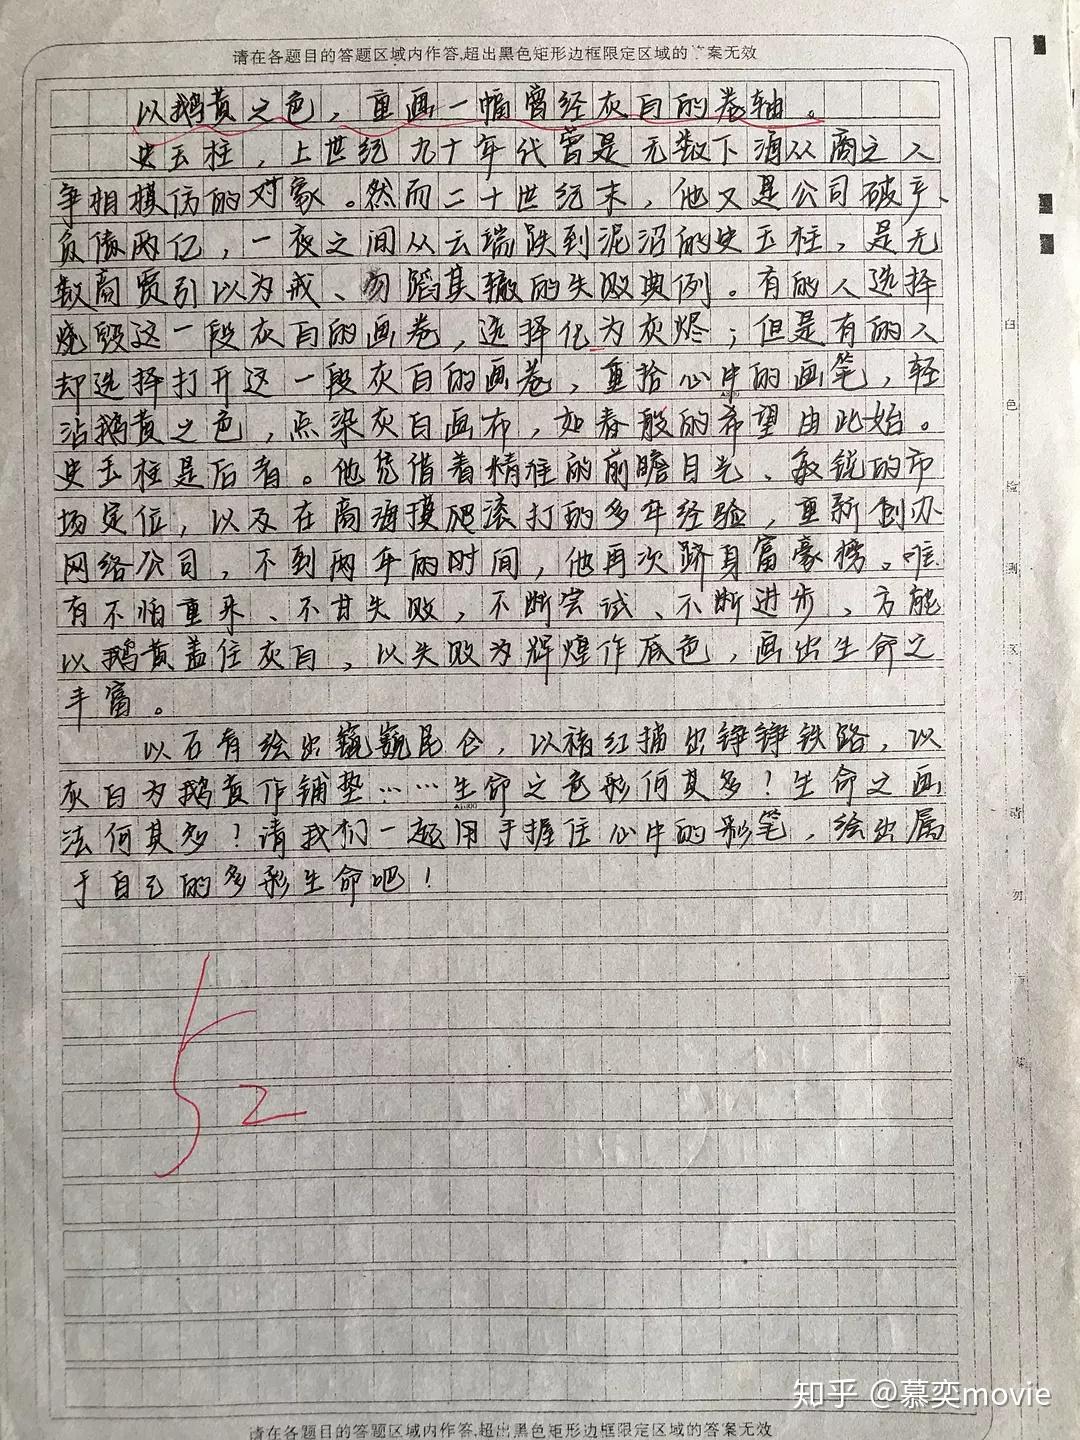 请在各题目的答题区域内作答,超出黑色矩形边框限定区域的答案无效
以鹅黄之色，重画一幅曾经灰白的卷轴。
史玉柱，上世纪九十年代曾是无数下海从商之人
争相模仿的对象。然而二十世纪末，他又是公司破产、
负债两亿，一夜之间从云端跌到泥沼的史玉柱，是无
数商贾引以为戒、勿蹈其辙的失败典例。有的人选择
烧毁这一段灰白的画卷，选择化为灰烬；但是有的人
却选择打开这一段灰白的画卷，重拾心中的画笔，轻
沾鹅黄之色，点染灰白画布，如春般的希望由此始。
史玉柱是后者。他凭借着精准的前瞻目光、敏锐的市
场定位，以及在商海摸爬滚打的多年经验，重新创办
网络公司，不到两年的时间，他再次跻身富豪榜。唯
有不怕重来、不甘失败，不断尝试、不断进步，方能
以鹅黄盖住灰白，以失败为辉煌作底色，画出生命之
丰富。
以石青绘出巍巍昆仑，以褚红描出铮铮铁路，以
灰白为鹅黄作铺垫……生命之色彩何其多！生命之画
法何其多！请我们一起用手握住心中的彩笔，绘出属
于自己的多彩生命吧！
52
白
色
检
测
区
请
勿
！
知乎 @慕奕movie
请在各题目的答题区域内作答,超出黑色矩形边框限定区域的答案无效